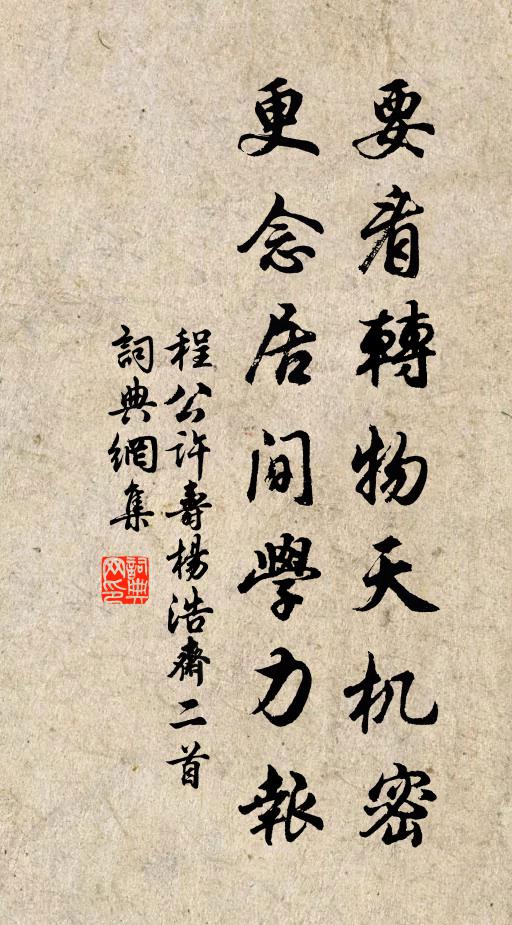 要看轉物天机密
更念居間學力報
程公許壽楊浩齋二首
詞典網集
詞典网印